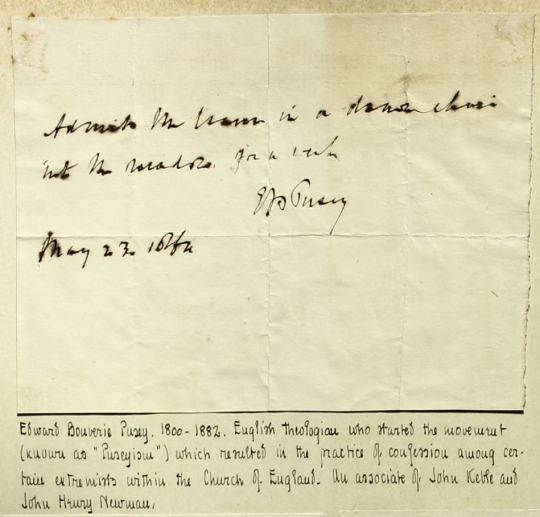 Admit Mr in a chair
into the meadow for a week
EB Pusey
May 23. 1864
Edward Bouverie Pusey. 1800-1882. English theologian who started the movement
(known as "Puseyism") which resulted in the practice of confession among cer-
tain extremists within the Church of England. An associate of John Keble and
John Henry Newman.